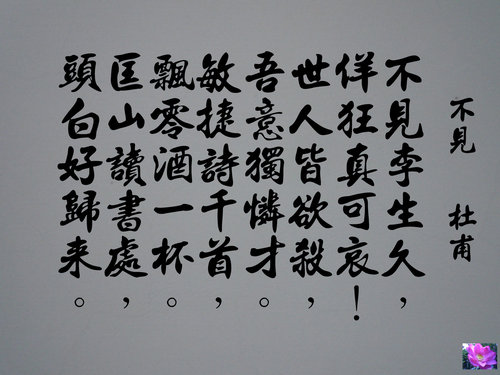 不見 杜甫
不見李生久，
佯狂真可哀！
世人皆欲殺，
吾意獨憐才。
敏捷詩千首，
飄零酒一杯。
匡山讀書處，
頭白好歸来。